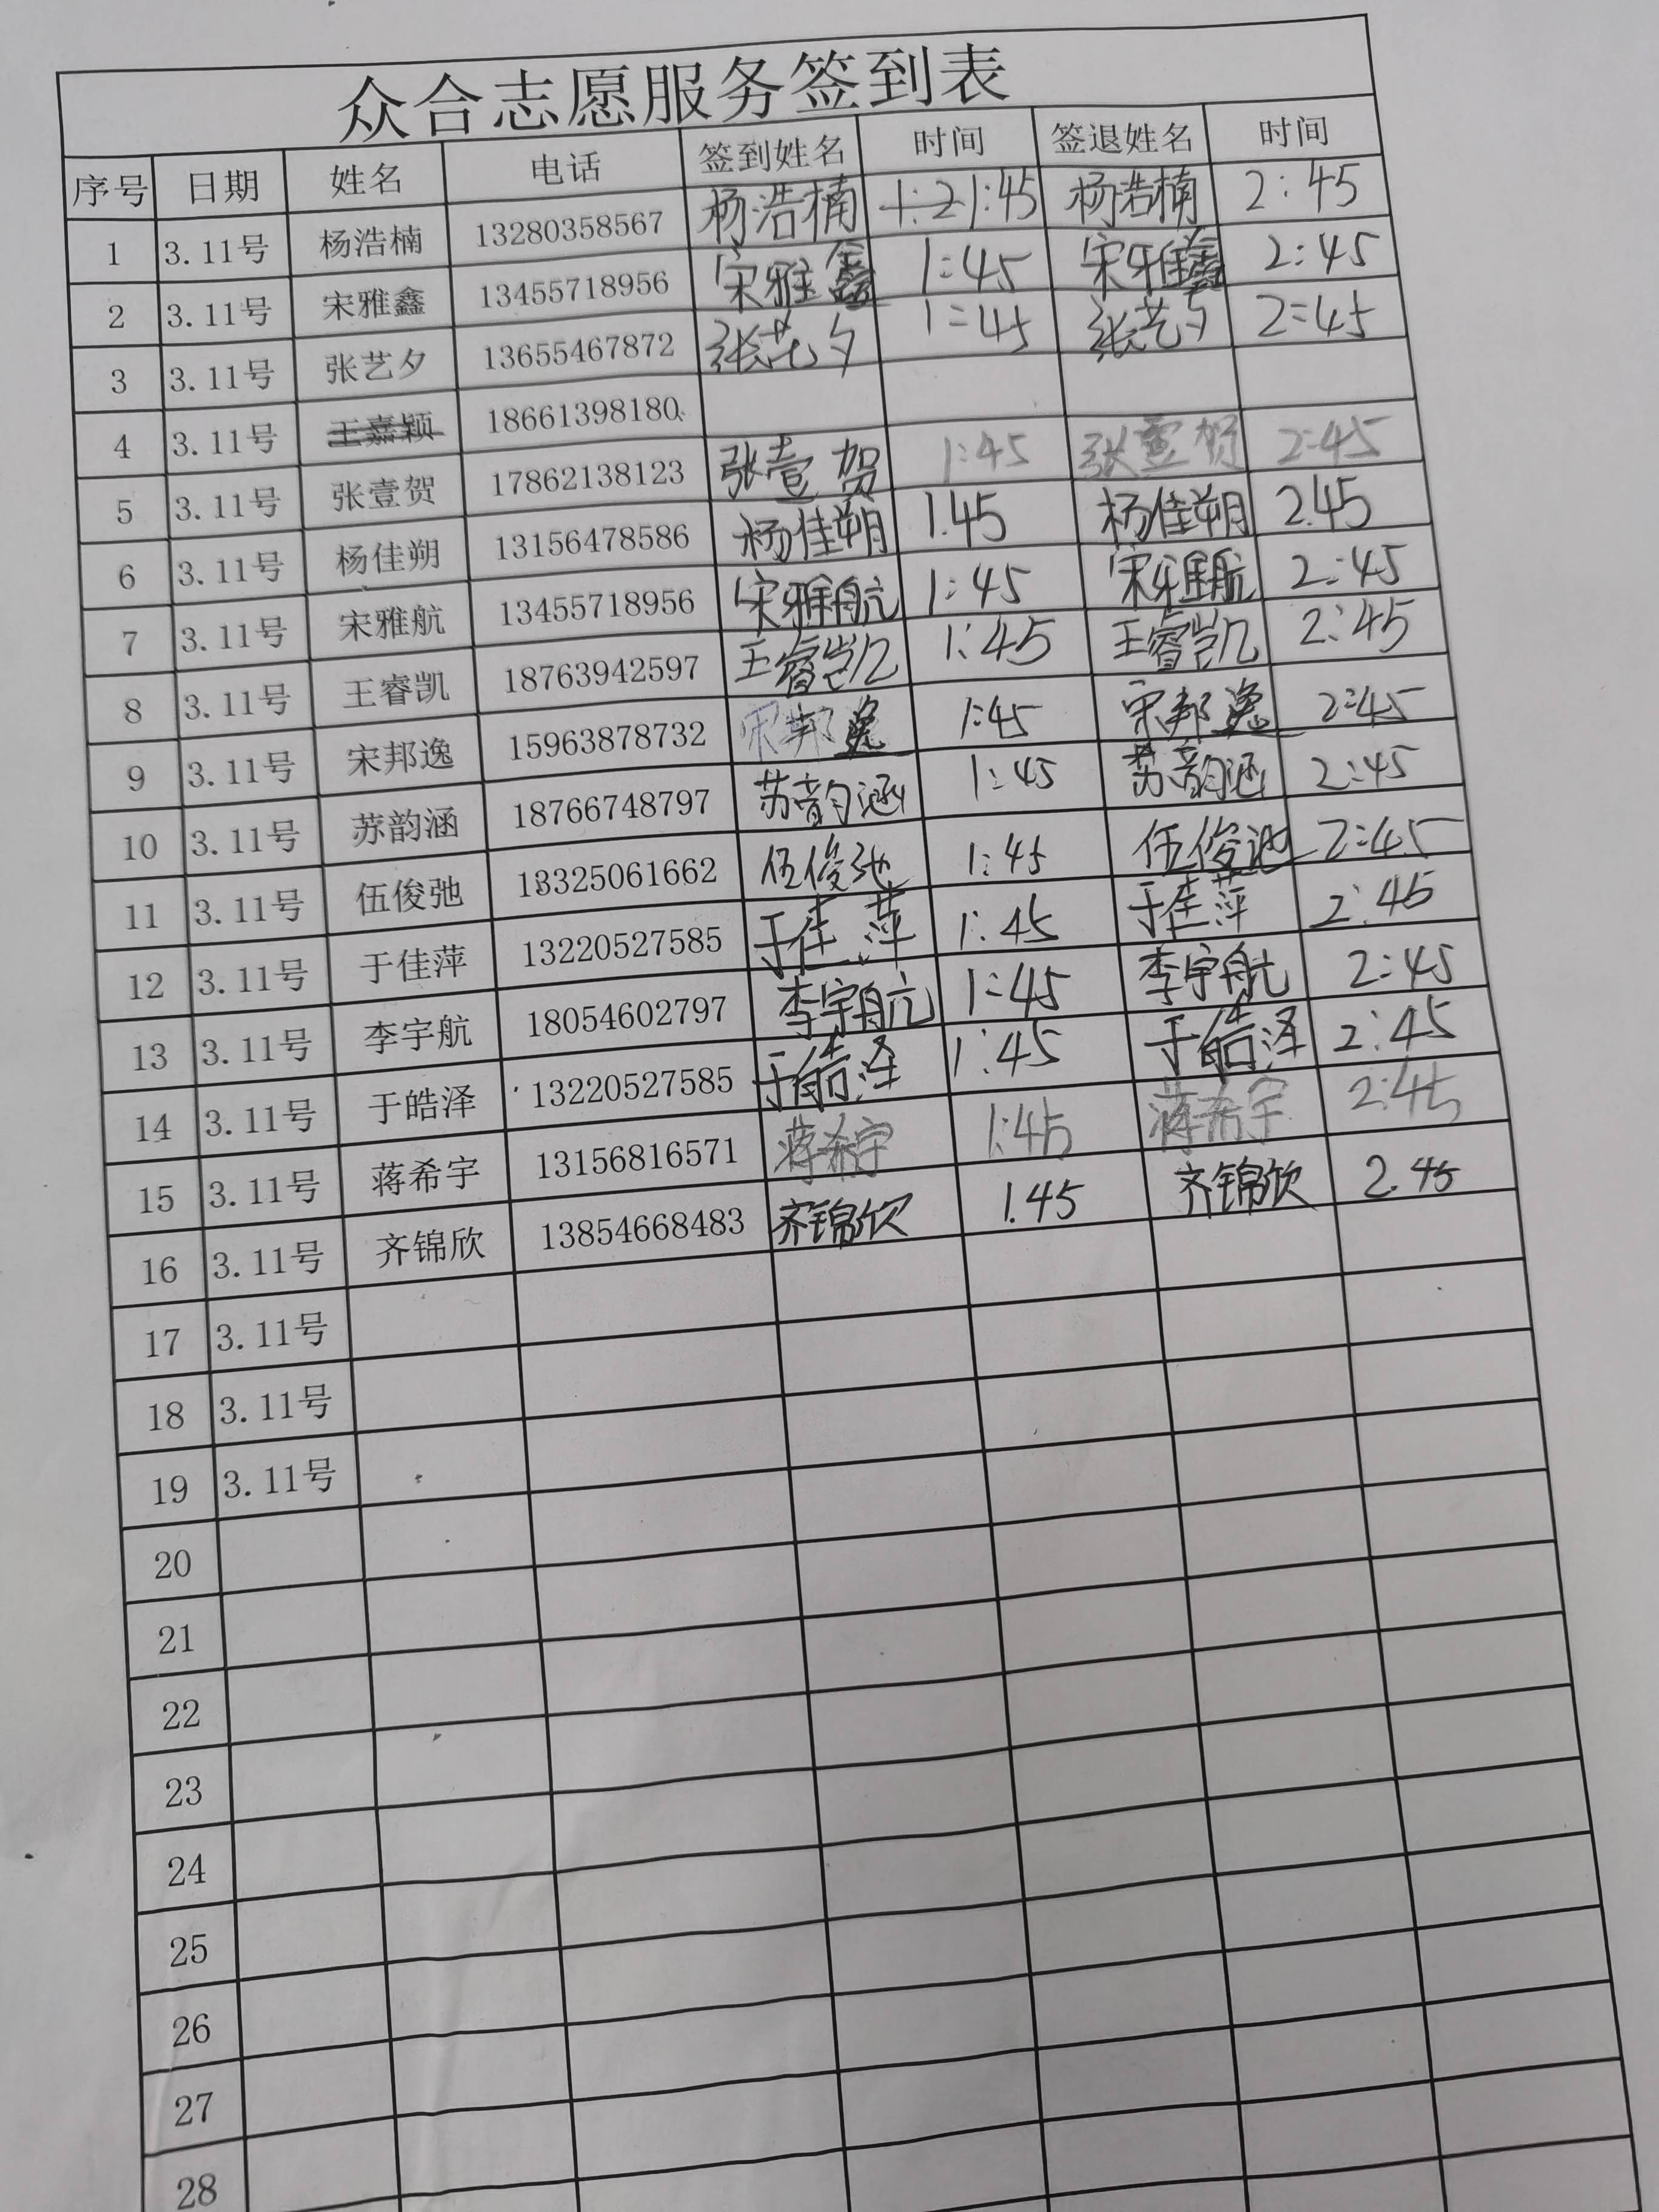 众合志愿服务签到表
序号 日期 姓名 电话 签到姓名 时间 签退姓名 时间
1 3.11号 杨浩楠 13280358567 杨浩楠 1:2 1:45 杨浩楠 2:45
2 3.11号 宋雅鑫 13455718956 宋雅鑫 1:45 宋雅鑫 2:45
3 3.11号 张艺夕 13655467872 张艺夕 1:45 张艺夕 2:45
4 3.11号 王嘉颖 18661398180
5 3.11号 张壹贺 17862138123 张壹贺 1:45 张壹贺 2:45
6 3.11号 杨佳朔 13156478586 杨佳朔 1.45 杨佳朔 2.45
7 3.11号 宋雅航 13455718956 宋雅航 1:45 宋雅航 2:45
8 3.11号 王睿凯 18763942597 王睿凯 1:45 王睿凯 2:45
9 3.11号 宋邦逸 15963878732 宋邦逸 1:45 宋邦逸 2:45
10 3.11号 苏韵涵 18766748797 苏韵涵 1:45 苏韵涵 2:45
11 3.11号 伍俊弛 13325061662 伍俊弛 1:45 伍俊弛 2:45
12 3.11号 于佳萍 13220527585 于佳萍 1:45 于佳萍 2:45
13 3.11号 李宇航 18054602797 李宇航 1:45 李宇航 2:45
14 3.11号 于皓泽 13220527585 于皓泽 1:45 于皓泽 2:45
15 3.11号 蒋希宇 13156816571 蒋希宇 1:45 蒋希宇 2:45
16 3.11号 齐锦欣 13854668483 齐锦欣 1.45 齐锦欣 2.45
17 3.11号
18 3.11号
19 3.11号
20
21
22
23
24
25
26
27
28